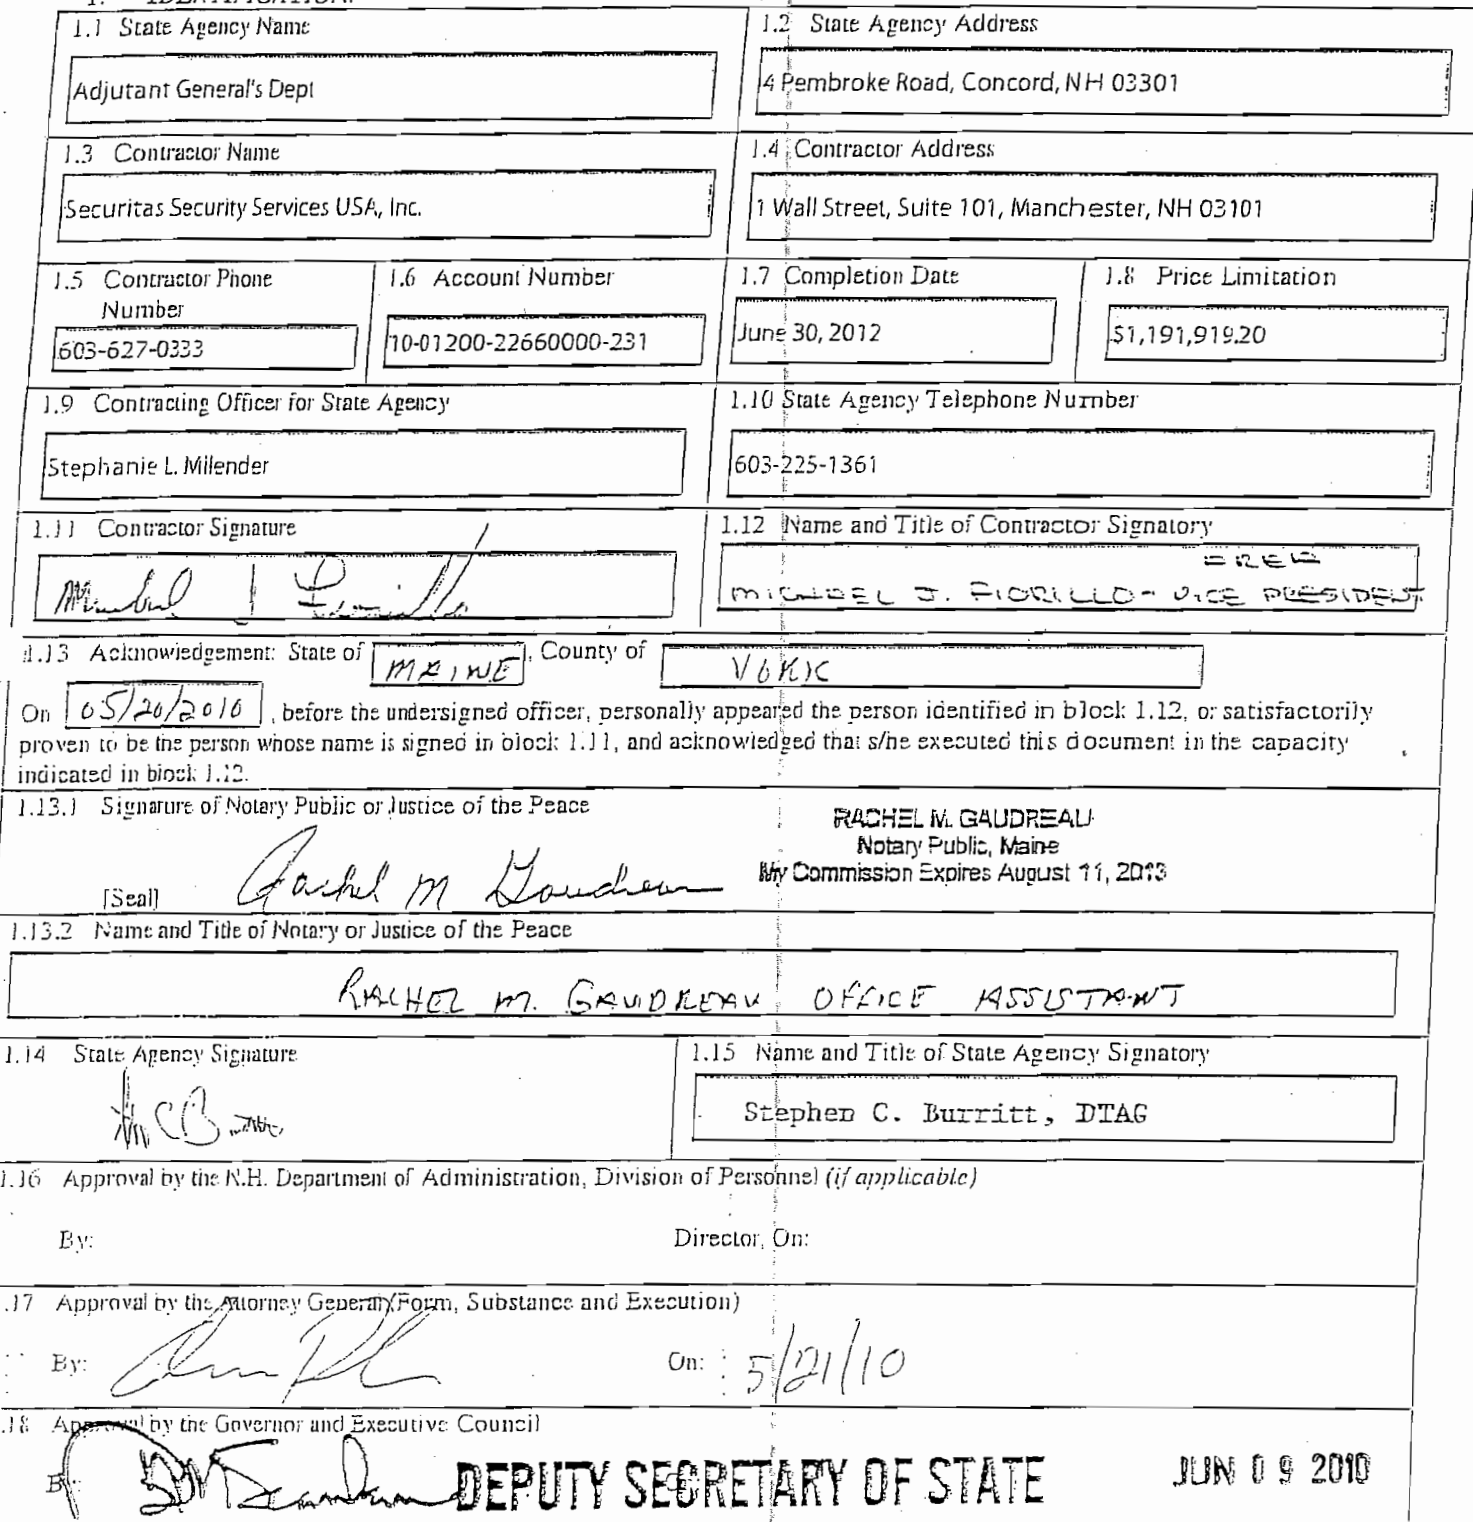 1. IDENTIFICATION.
1.1 State Agency Name
Adjutant General's Dept
1.2 State Agency Address
4 Pembroke Road, Concord, NH 03301
1.3 Contractor Name
Securitas Security Services USA, Inc.
1.4 Contractor Address
1 Wall Street, Suite 101, Manchester, NH 03101
1.5 Contractor Phone
Number
603-627-0333
1.6 Account Number
10-01200-22660000-231
1.7 Completion Date
June 30, 2012
1.8 Price Limitation
$1,191,919.20
1.9 Contracting Officer for State Agency
Stephanie L. Milender
1.10 State Agency Telephone Number
603-225-1361
1.11 Contractor Signature
Michael J Fiorillo
1.12 Name and Title of Contractor Signatory
AREA
MICHAEL J. FIORILLO - VICE PRESIDENT
1.13 Acknowledgement: State of MAINE, County of YORK
On 05/20/2010, before the undersigned officer, personally appeared the person identified in block 1.12, or satisfactorily
proven to be the person whose name is signed in block 1.11, and acknowledged that s/he executed this document in the capacity
indicated in block 1.12.
1.13.1 Signature of Notary Public or Justice of the Peace
RACHEL M. GAUDREAU
Notary Public, Maine
My Commission Expires August 11, 2013
[Seal] Rachel M Gaudreau
1.13.2 Name and Title of Notary or Justice of the Peace
RACHEL M. GAUDREAU OFFICE ASSISTANT
1.14 State Agency Signature
1.15 Name and Title of State Agency Signatory
Stephen C. Burritt, DTAG
1.16 Approval by the N.H. Department of Administration, Division of Personnel (if applicable)
By: Director, On:
.17 Approval by the Attorney General (Form, Substance and Execution)
By: On: 5/21/10
.18 Approval by the Governor and Executive Council
By: DEPUTY SECRETARY OF STATE JUN 09 2010